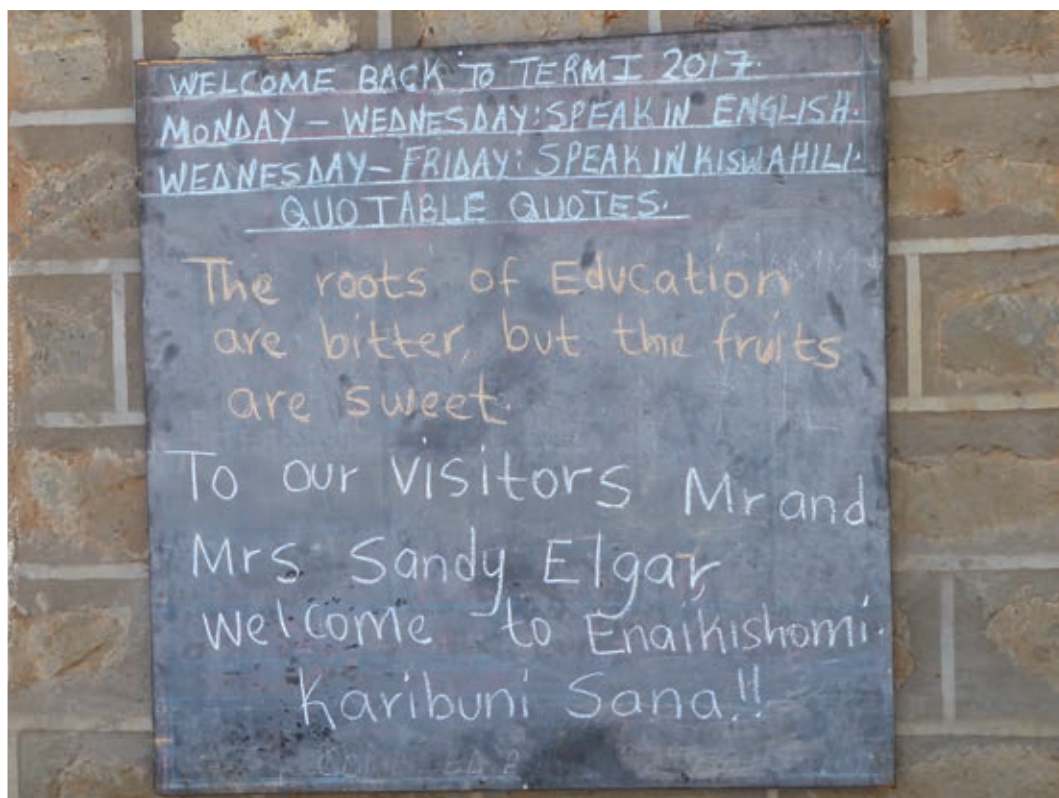 WELCOME BACK TO TERM I 2017.
MONDAY - WEDNESDAY: SPEAK IN ENGLISH.
WEDNESDAY - FRIDAY: SPEAK IN KISWAHILI.
QUOTABLE QUOTES.
The roots of Education
are bitter, but the fruits
are sweet.
To our visitors Mr and
Mrs Sandy Elgar,
Welcome to Enaikishomi.
Karibuni Sana!!